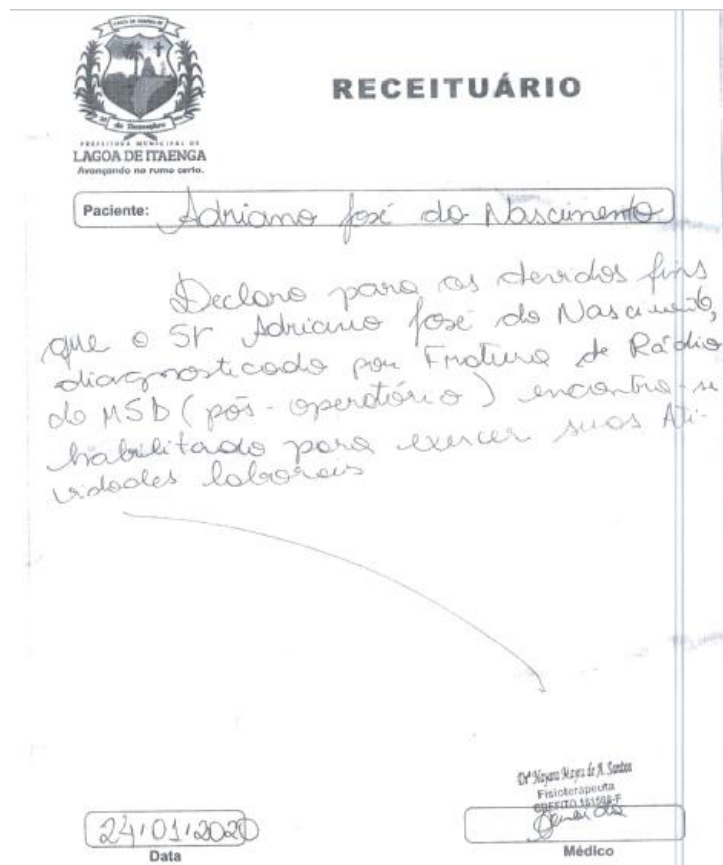 RECEITUÁRIO
PREFEITURA MUNICIPAL DE
LAGOA DE ITAENGA
Avançando no rumo certo.
Paciente: Adriano José do Nascimento
Declaro para os devidos fins
que o Sr Adriano José do Nascimento,
diagnosticado por Fratura de Rádio
do MSD (pós-operatório) encontra-se
habilitado para exercer suas Ati-
vidades laborais
Santos
Fisioterapeuta
24/01/2020
Data
Médico